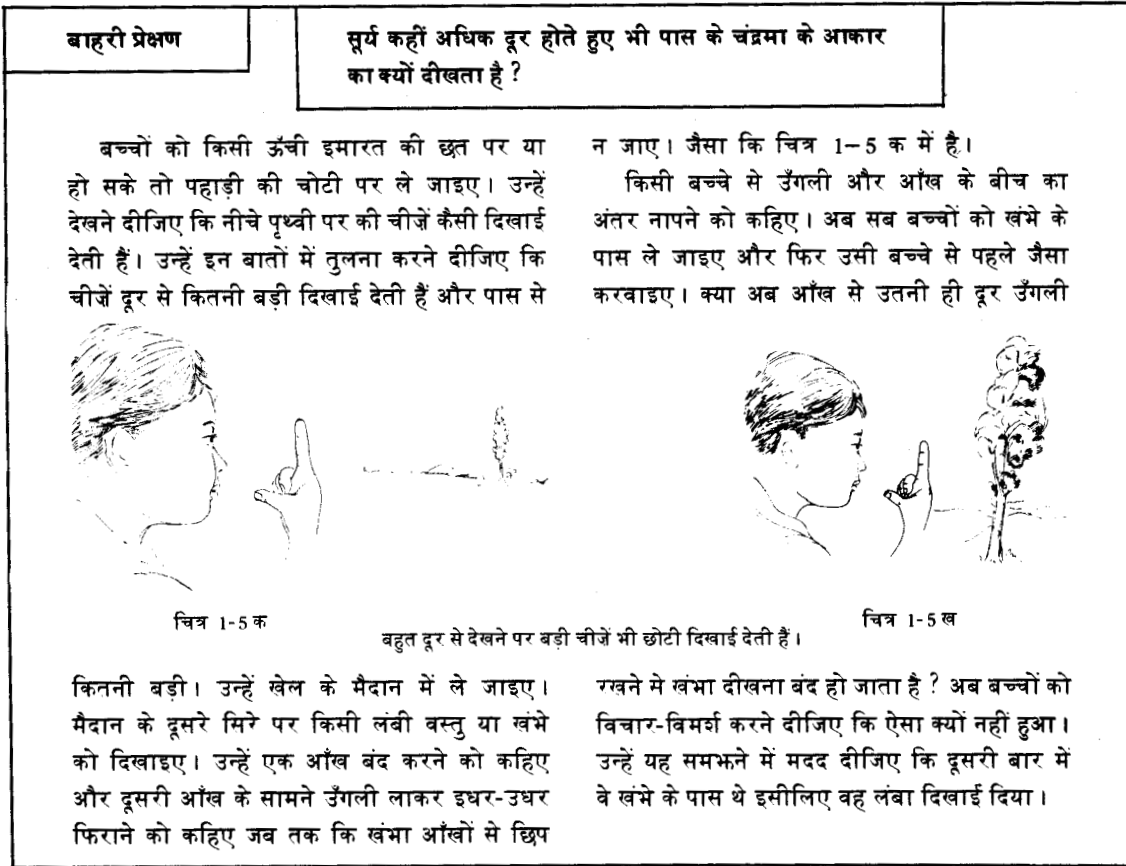 बाहरी प्रेक्षण
सूर्य कहीं अधिक दूर होते हुए भी पास के चंद्रमा के आकार
का क्यों दीखता है ?
बच्चों को किसी ऊँची इमारत की छत पर या
हो सके तो पहाड़ी की चोटी पर ले जाइए। उन्हें
देखने दीजिए कि नीचे पृथ्वी पर की चीज़ें कैसी दिखाई
देती हैं। उन्हें इन बातों में तुलना करने दीजिए कि
चीज़ें दूर से कितनी बड़ी दिखाई देती हैं और पास से
कितनी बड़ी। उन्हें खेल के मैदान में ले जाइए।
मैदान के दूसरे सिरे पर किसी लंबी वस्तु या खंभे
को दिखाइए। उन्हें एक आँख बंद करने को कहिए
और दूसरी आँख के सामने उँगली लाकर इधर-उधर
फिराने को कहिए जब तक कि खंभा आँखों से छिप
न जाए। जैसा कि चित्र 1-5 क में है।
किसी बच्चे से उँगली और आँख के बीच का
अंतर नापने को कहिए। अब सब बच्चों को खंभे के
पास ले जाइए और फिर उसी बच्चे से पहले जैसा
करवाइए। क्या अब आँख से उतनी ही दूर उँगली
रखने से खंभा दीखना बंद हो जाता है ? अब बच्चों को
विचार-विमर्श करने दीजिए कि ऐसा क्यों नहीं हुआ।
उन्हें यह समझने में मदद दीजिए कि दूसरी बार में
वे खंभे के पास थे इसीलिए वह लंबा दिखाई दिया।
चित्र 1-5 क
चित्र 1-5 ख
बहुत दूर से देखने पर बड़ी चीज़ें भी छोटी दिखाई देती हैं।